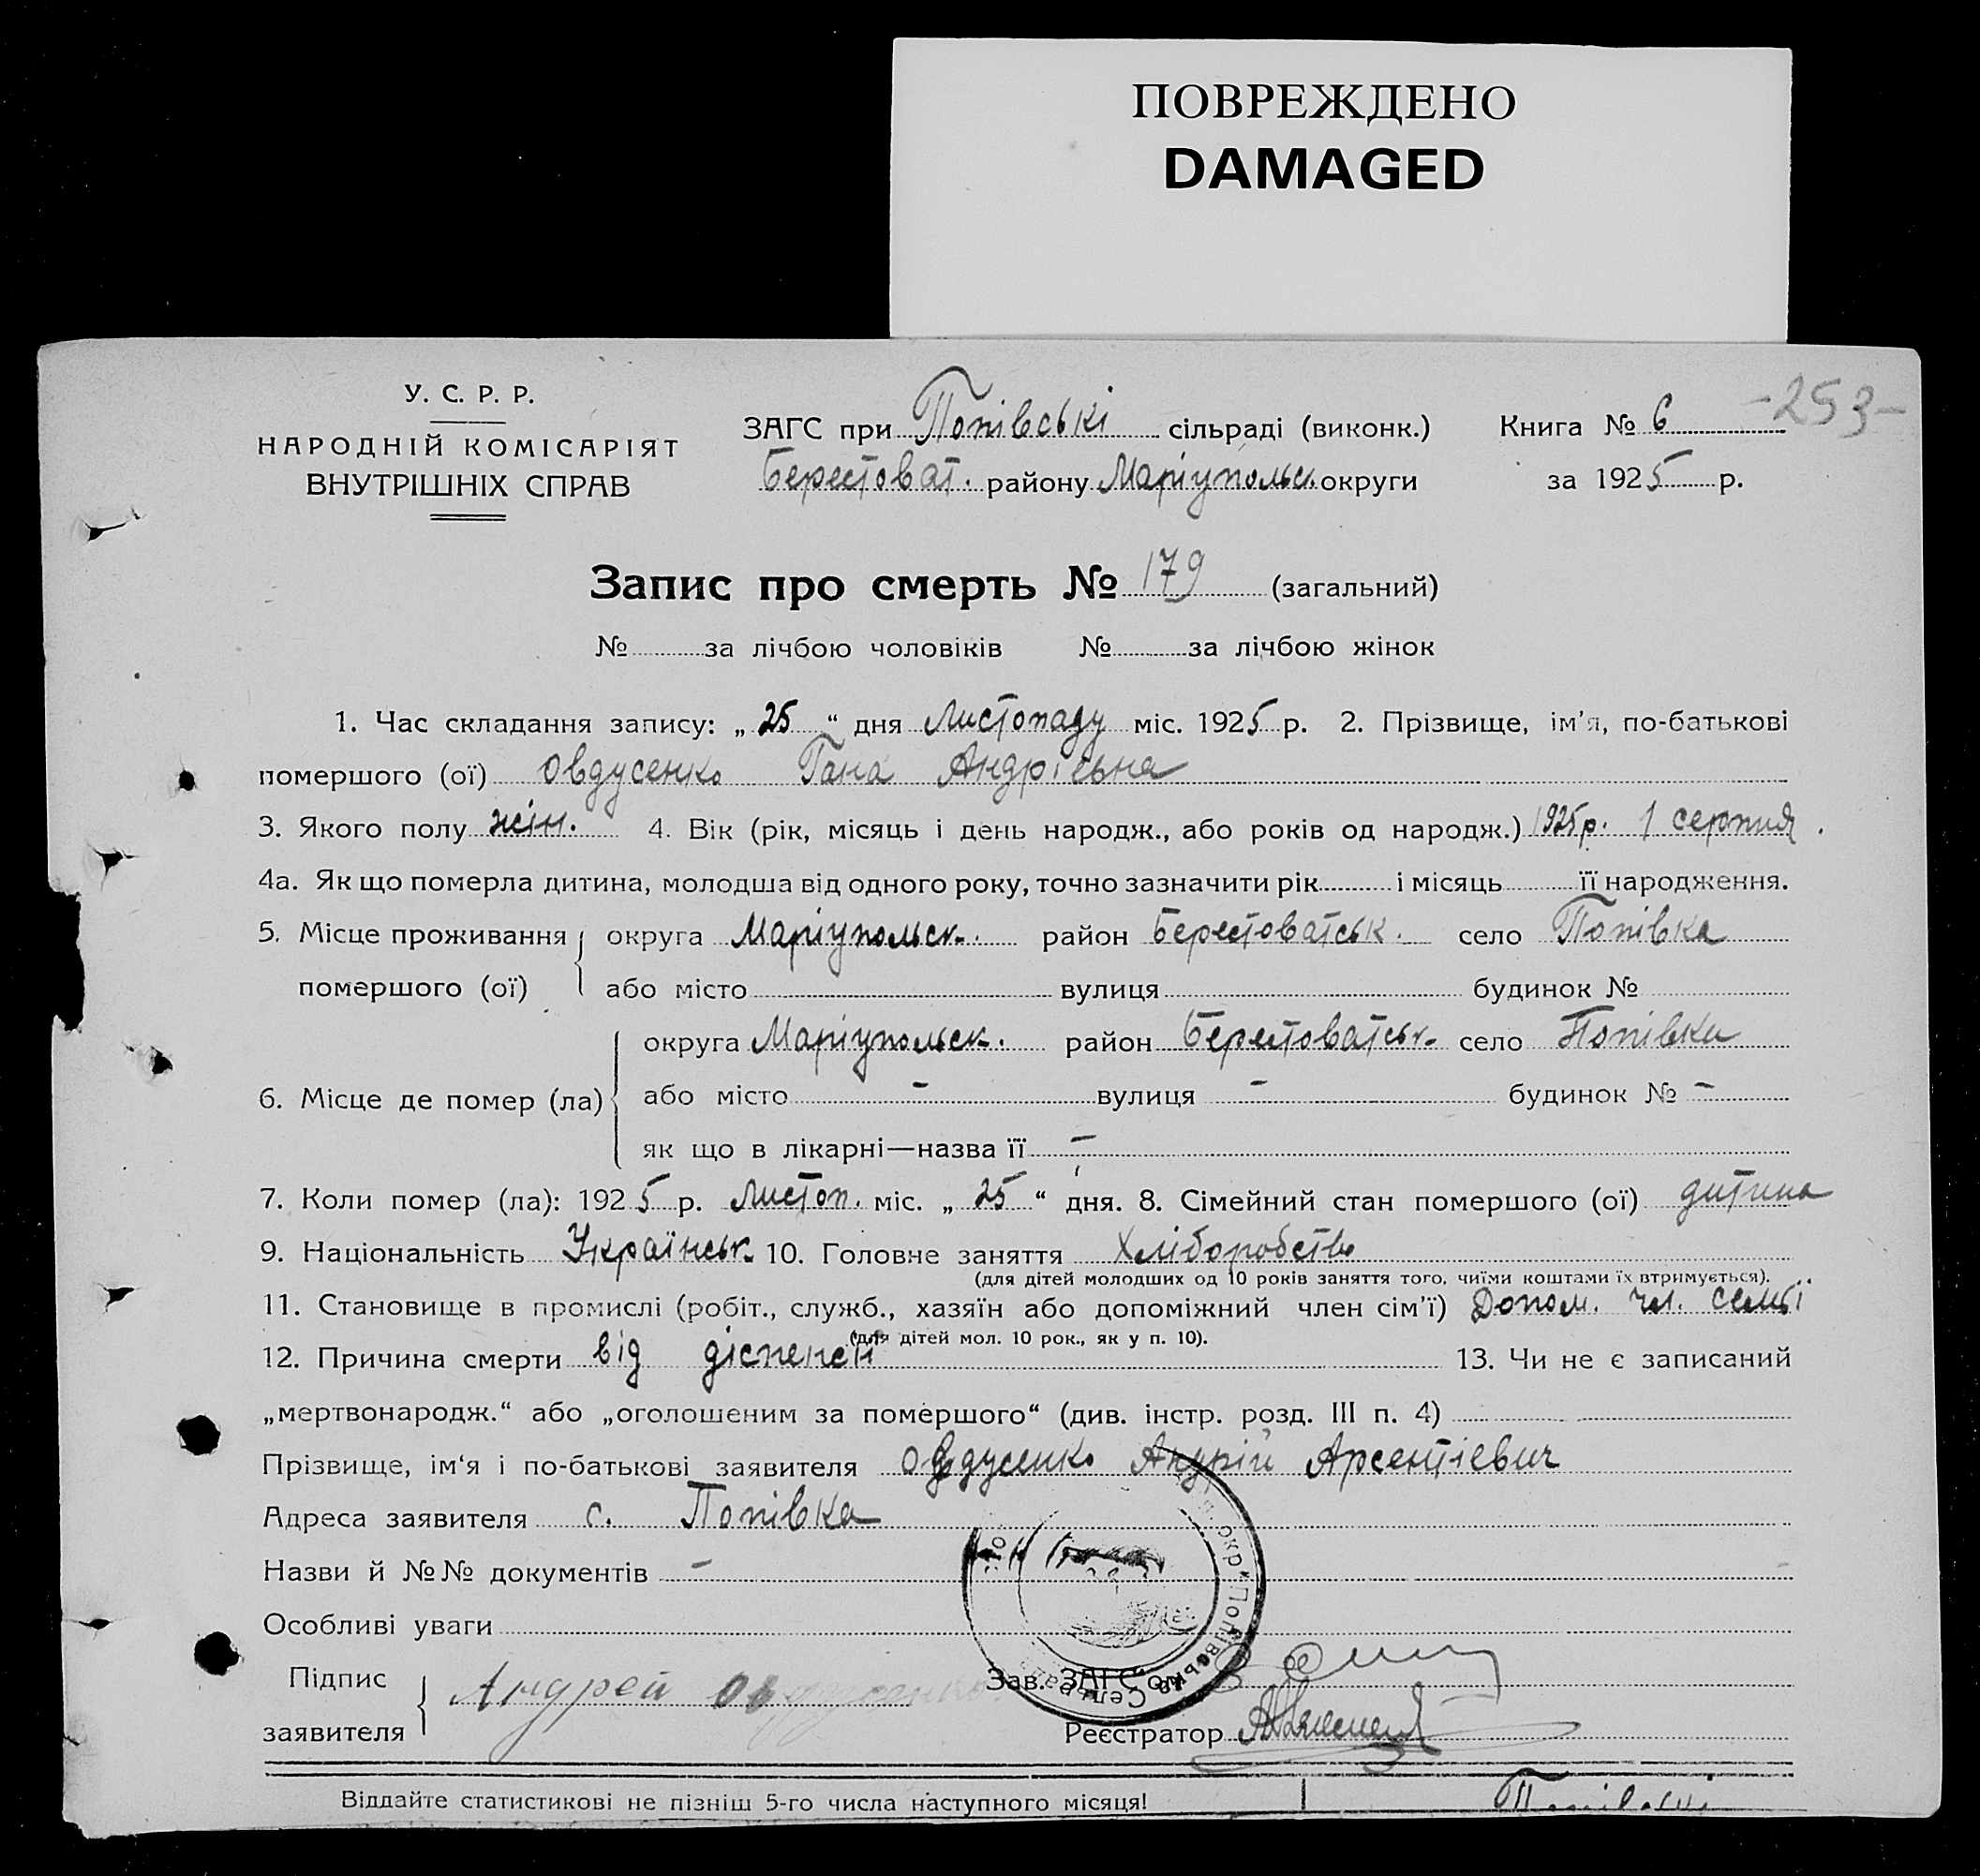 ПОВРЕЖДЕНО
DAMAGED
-253-
У. С. Р. Р.
НАРОДНІЙ КОМІСАРІЯТ
ВНУТРІШНІХ СПРАВ
ЗАГС при Попівські сільраді (виконк.) Книга № 6
Берестоват. району Маріупольск. округи за 1925 р.
Запис про смерть № 179 (загальний)
№ за лічбою чоловіків № за лічбою жінок
1. Час складання запису: „ 25 “ дня Листопаду міс. 1925 р. 2. Прізвище, ім’я, по-батькові
помершого (ої) Овдусенко Гана Андрієвна
3. Якого полу жін. 4. Вік (рік, місяць і день народж., або років од народж.) 1925 р. 1 серпня.
4а. Як що померла дитина, молодша від одного року, точно зазначити рік і місяць її народження.
5. Місце проживання округа Маріупольск. район Берестоватськ. село Попівка
помершого (ої) або місто вулиця будинок №
округа Маріупольск. район Берестоватськ. село Попівка
6. Місце де помер (ла) або місто - вулиця - будинок № -
як що в лікарні—назва її -
7. Коли помер (ла): 1925 р. Листоп. міс. „ 25 “ дня. 8. Сімейний стан помершого (ої) дитина
9. Національність Українськ. 10. Головне заняття Хліборобство
(для дітей молодших од 10 років заняття того, чиїми коштами їх втримується).
11. Становище в промислі (робіт., служб., хазяїн або допоміжний член сім’ї) Допом. чл. семьї
(для дітей мол. 10 рок., як у п. 10).
12. Причина смерти від діспенсії 13. Чи не є записаний
„мертвонародж.“ або „оголошеним за помершого“ (див. інстр. розд. III п. 4)
Прізвище, ім‘я і по-батькові заявителя Овдусенко Андрій Арсентіевич
Адреса заявителя с. Попівка
Назви й №№ документів -
Особливі уваги
Підпис Андрей Зав. ЗАГС‘ом
заявителя Реєстратор
окр. Попівсько Сельрада
Віддайте статистикові не пізніш 5-го числа наступного місяця!